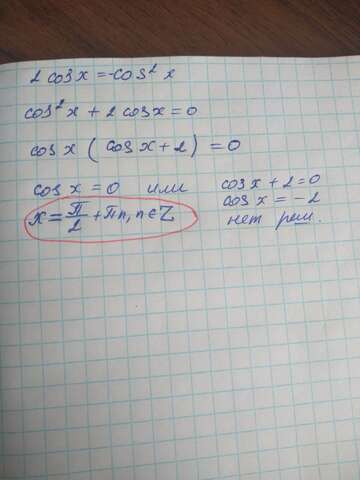 2 cos x = -cos² x
cos² x + 2 cos x = 0
cos x ( cos x + 2 ) = 0
cos x = 0 или cos x + 2 = 0
cos x = -2
x = π/2 + πn, n ∈ Z нет реш.